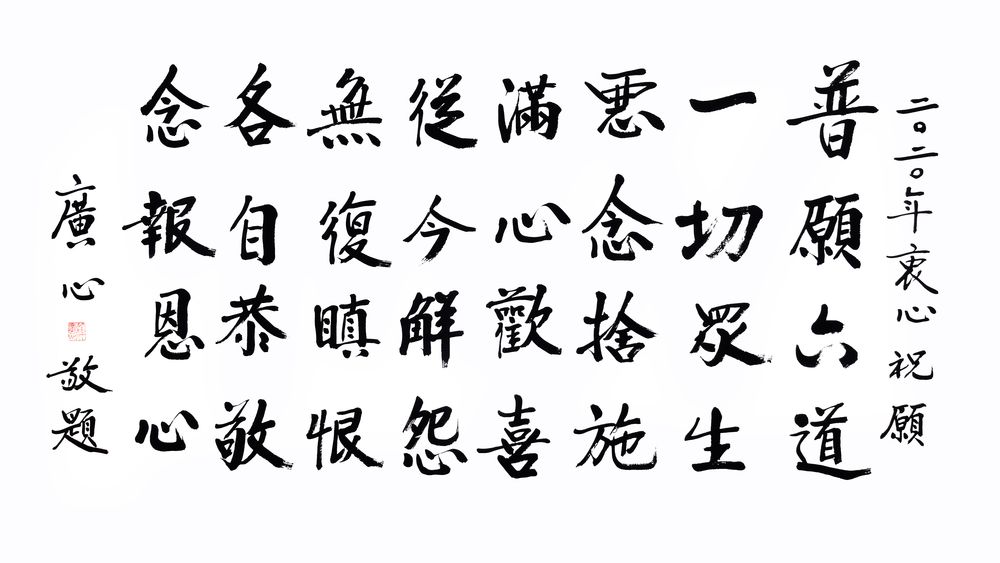 二〇二〇年衷心祝願
普願六道
一切眾生
悪念捨施
滿心歡喜
從今解怨
無復瞋恨
各自恭敬
念報恩心
廣心敬題